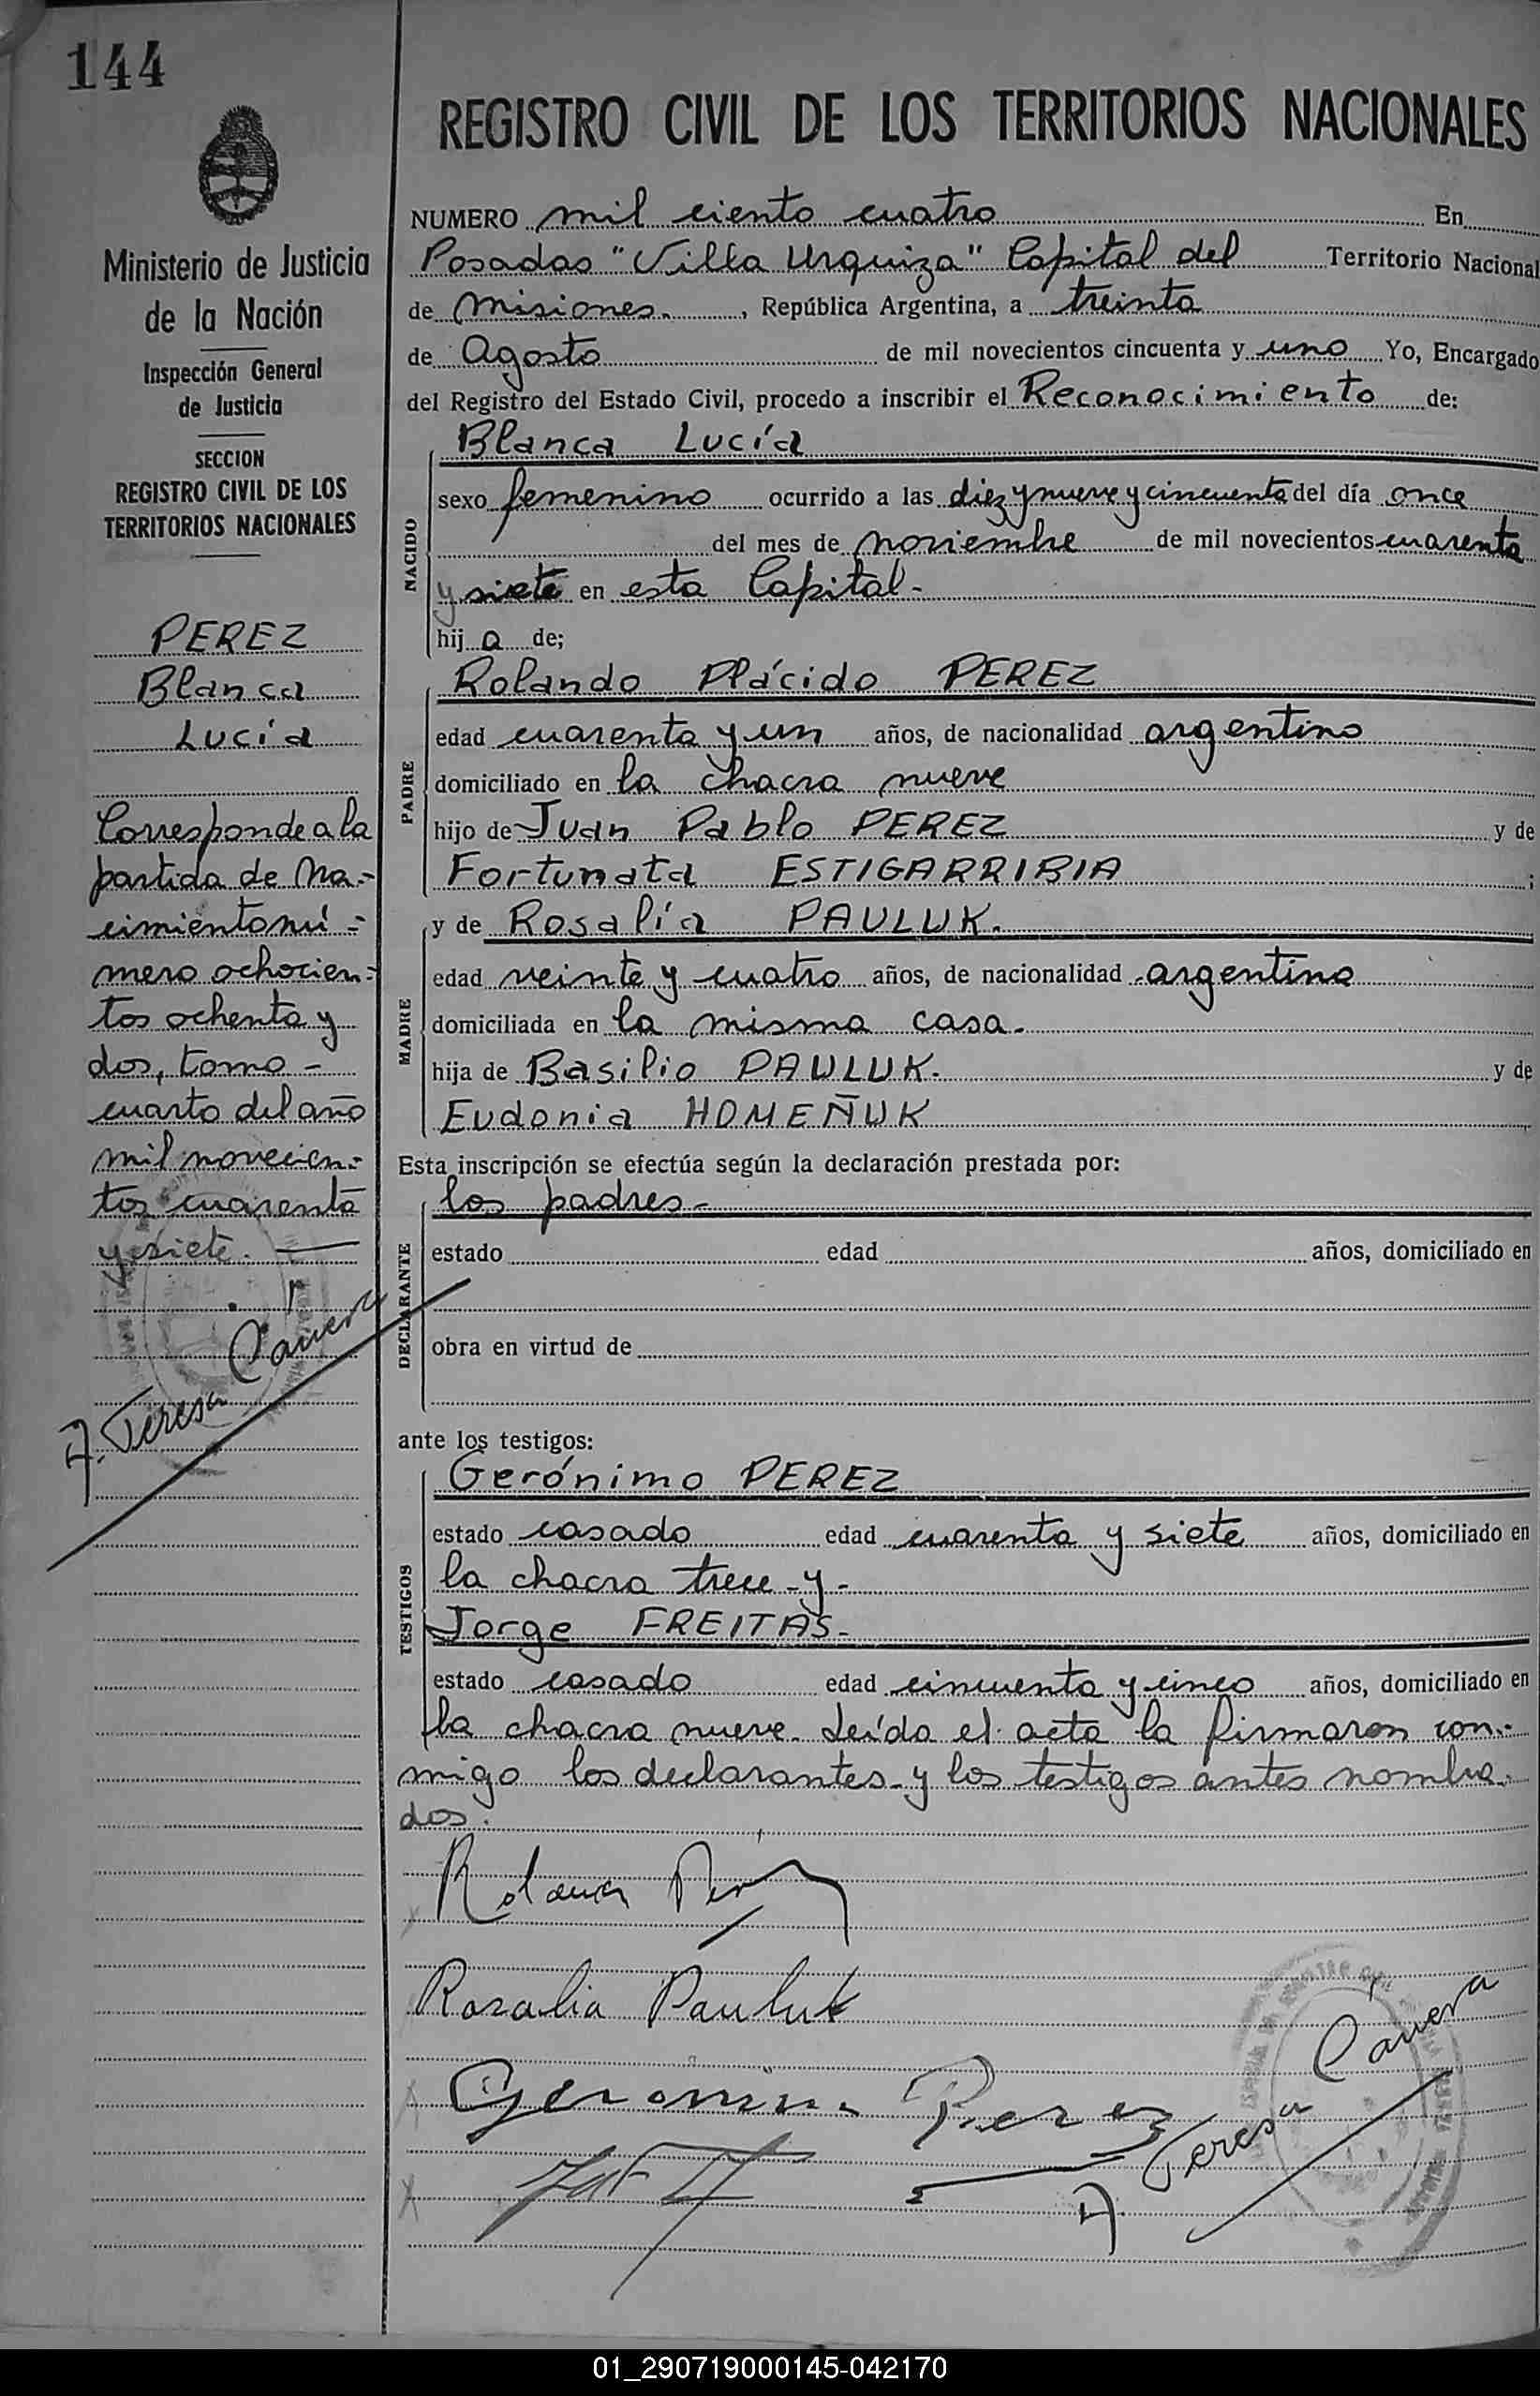 144
REGISTRO CIVIL DE LOS TERRITORIOS NACIONALES
Ministerio de Justicia
de la Nación
Inspección General
de Justicia
SECCION
REGISTRO CIVIL DE LOS
TERRITORIOS NACIONALES
PEREZ
Blanca
Lucía
Corresponde a la
partida de na-
cimiento nú-
mero ochocien-
tos ochenta y
dos, tomo -
cuarto del año
mil novecien-
tos cuarenta
y siete.
A. Teresa
NUMERO mil ciento cuatro En
Posadas "Villa Urquiza" Capital del Territorio Nacional
de Misiones. , República Argentina, a treinta
de Agosto de mil novecientos cincuenta y uno Yo, Encargado
del Registro del Estado Civil, procedo a inscribir el Reconocimiento de:
NACIDO
Blanca Lucía
sexo femenino ocurrido a las diez y nueve y cincuenta del día once
del mes de noviembre de mil novecientos cuarenta
y siete en esta Capital-
hij a de;
PADRE
Rolando Plácido PEREZ
edad cuarenta y un años, de nacionalidad argentino
domiciliado en la chacra nueve
hijo de Juan Pablo PEREZ y de
Fortunata ESTIGARRIBIA ;
MADRE
y de Rosalía PAULUK.
edad veinte y cuatro años, de nacionalidad argentina
domiciliada en la misma casa.
hija de Basilio PAULUK. y de
Eudonia HOMEÑUK
Esta inscripción se efectúa según la declaración prestada por:
DECLARANTE
los padres-
estado edad años, domiciliado en
obra en virtud de
ante los testigos:
TESTIGOS
Gerónimo PEREZ
estado casado edad cuarenta y siete años, domiciliado en
la chacra trece - y -
Jorge FREITAS-
estado casado edad cincuenta y cinco años, domiciliado en
la chacra nueve. Leída el acta la firmaron con-
migo los declarantes y los testigos antes nombra-
dos.
Rosalia Pauluk
Geronimo Perez
A. Teresa
01_290719000145-042170